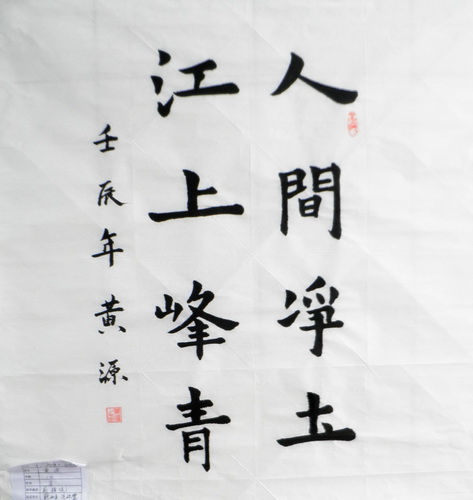 人間淨土
江上峰青
壬辰年黄源